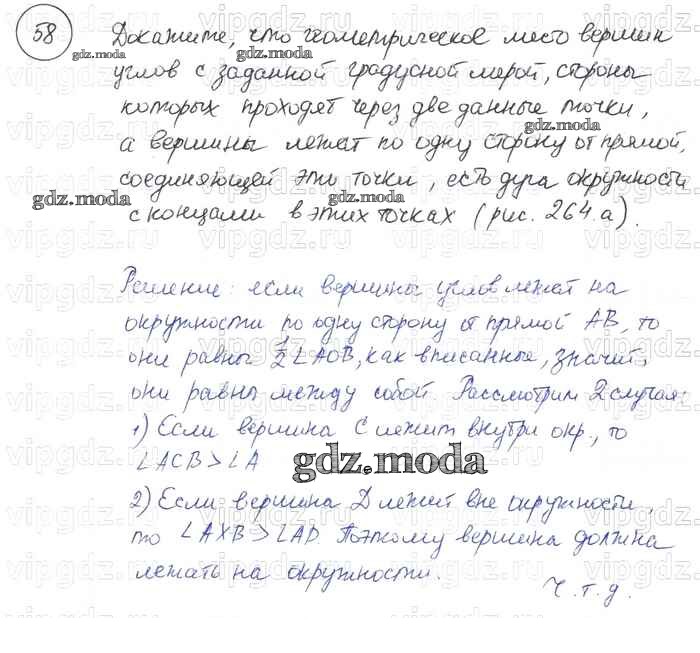 58 Докажите, что геометрическое место вершин
углов с заданной градусной мерой, стороны
которых проходят через две данные точки,
а вершины лежат по одну сторону от прямой,
соединяющей эти точки, есть дуга окружности
с концами в этих точках (рис. 264.а).
Решение: если вершины углов лежат на
окружности по одну сторону от прямой АВ, то
они равны 1/2 ∠АОВ, как вписанные, значит,
они равны между собой. Рассмотрим 2 случая:
1) Если вершина С лежит внутри окр., то
∠АСВ > ∠А
gdz.moda
2) Если вершина Д лежит вне окружности,
то ∠АХВ > ∠АД. Поэтому вершина должна
лежать на окружности.
Ч.т.д.